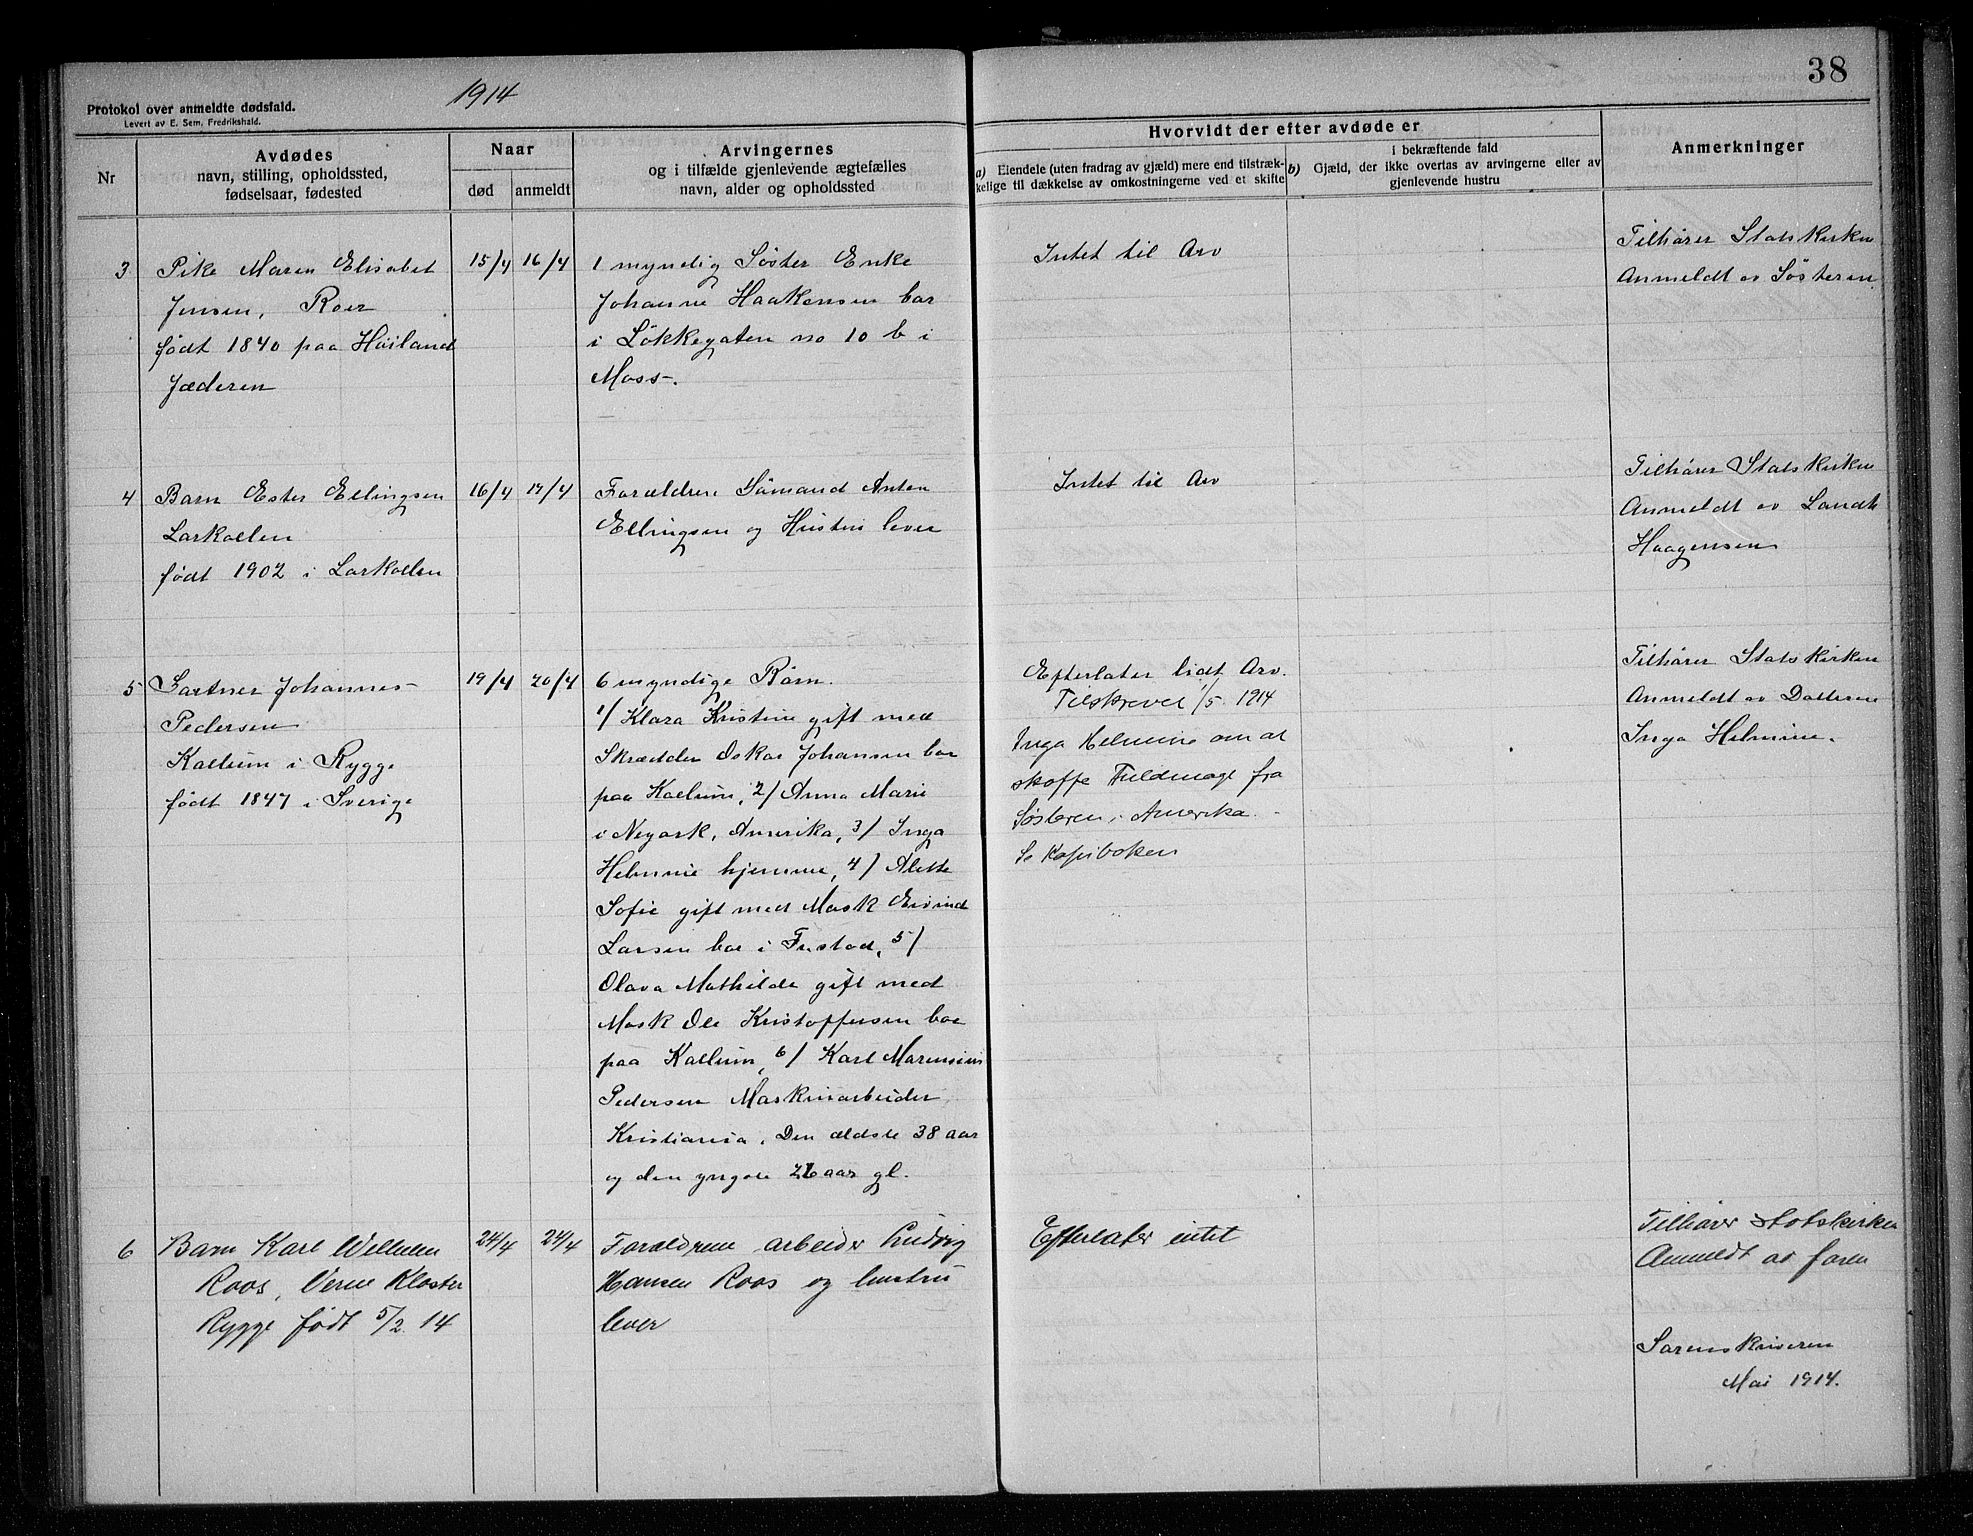 1914
38
Protokol over anmeldte dødsfald.
Levert av E. Sem, Fredrikshald.
Nr
Avdødes
navn, stilling, opholdssted,
fødselsaar, fødested
Naar
død
anmeldt
Arvingernes
og i tilfælde gjenlevende ægtefælles
navn, alder og opholdssted
Hvorvidt der efter avdøde er
a) Eiendele (uten fradrag av gjæld) mere end tilstræk-
kelige til dækkelse av omkostningerne ved et skifte
b) i bekræftende fald
Gjæld, der ikke overtas av arvingerne eller av
gjenlevende hustru
Anmerkninger
3
Pike Maren Elisabet
Jensen, Roer
født 1840 paa Høiland
Jæderen
15/4
16/4
1 myndig Søster Enke
Johanne Haakensen bor
i Løkkegaten no 10 b i
Moss.
Intet til Arv
Tilhører Statskirken
Anmeldt av Søsteren
4
Barn Ester Ellingsen
Larkollen
født 1902 i Larkollen
16/4
17/4
Forældrene Sømand Anton
Ellingsen og Hustru lever
Intet til Arv
Tilhører Statskirken
Anmeldt av Landh
Haagensen
5
Gartner Johannes
Pedersen
Kallum i Rygge
født 1847 i Sverige
19/4
20/4
6 myndige Børn.
1/ Klara Kristine gift med
Skrædder Oskar Johansen bor
paa Kallum, 2/ Anna Marie
i Neyork, Amerika, 3/ Inga
Helmine hjemme, 4/ Alette
Sofie gift med Mask Eivind
Larsen bor i Frestad, 5/
Olava Mathilde gift med
Mask Ole Kristoffersen bor
paa Kallum, 6/ Karl Marensius
Pedersen Maskinarbeider
Kristiania. Den ældste 38 aar
og den yngste 26 aar gl.
Efterlater lidt Arv.
Tilskrevet 1/5 1914
Inga Helmine om at
skaffe Fuldmagt fra
Søsteren i Amerika.
Se Kopiboken
Tilhører Statskirken
Anmeldt av Datteren
Inga Helmine.
6
Barn Karl Wilhelm
Roos, Verne Kloster
Rygge født 5/2 14
24/4
24/4
Forældrene arbeider Ludvig
Hansen Roos og hustru
lever
Efterlater intet
Tilhører statskirken
Anmeldt av faren
Sorenskriveren
Mai 1914.